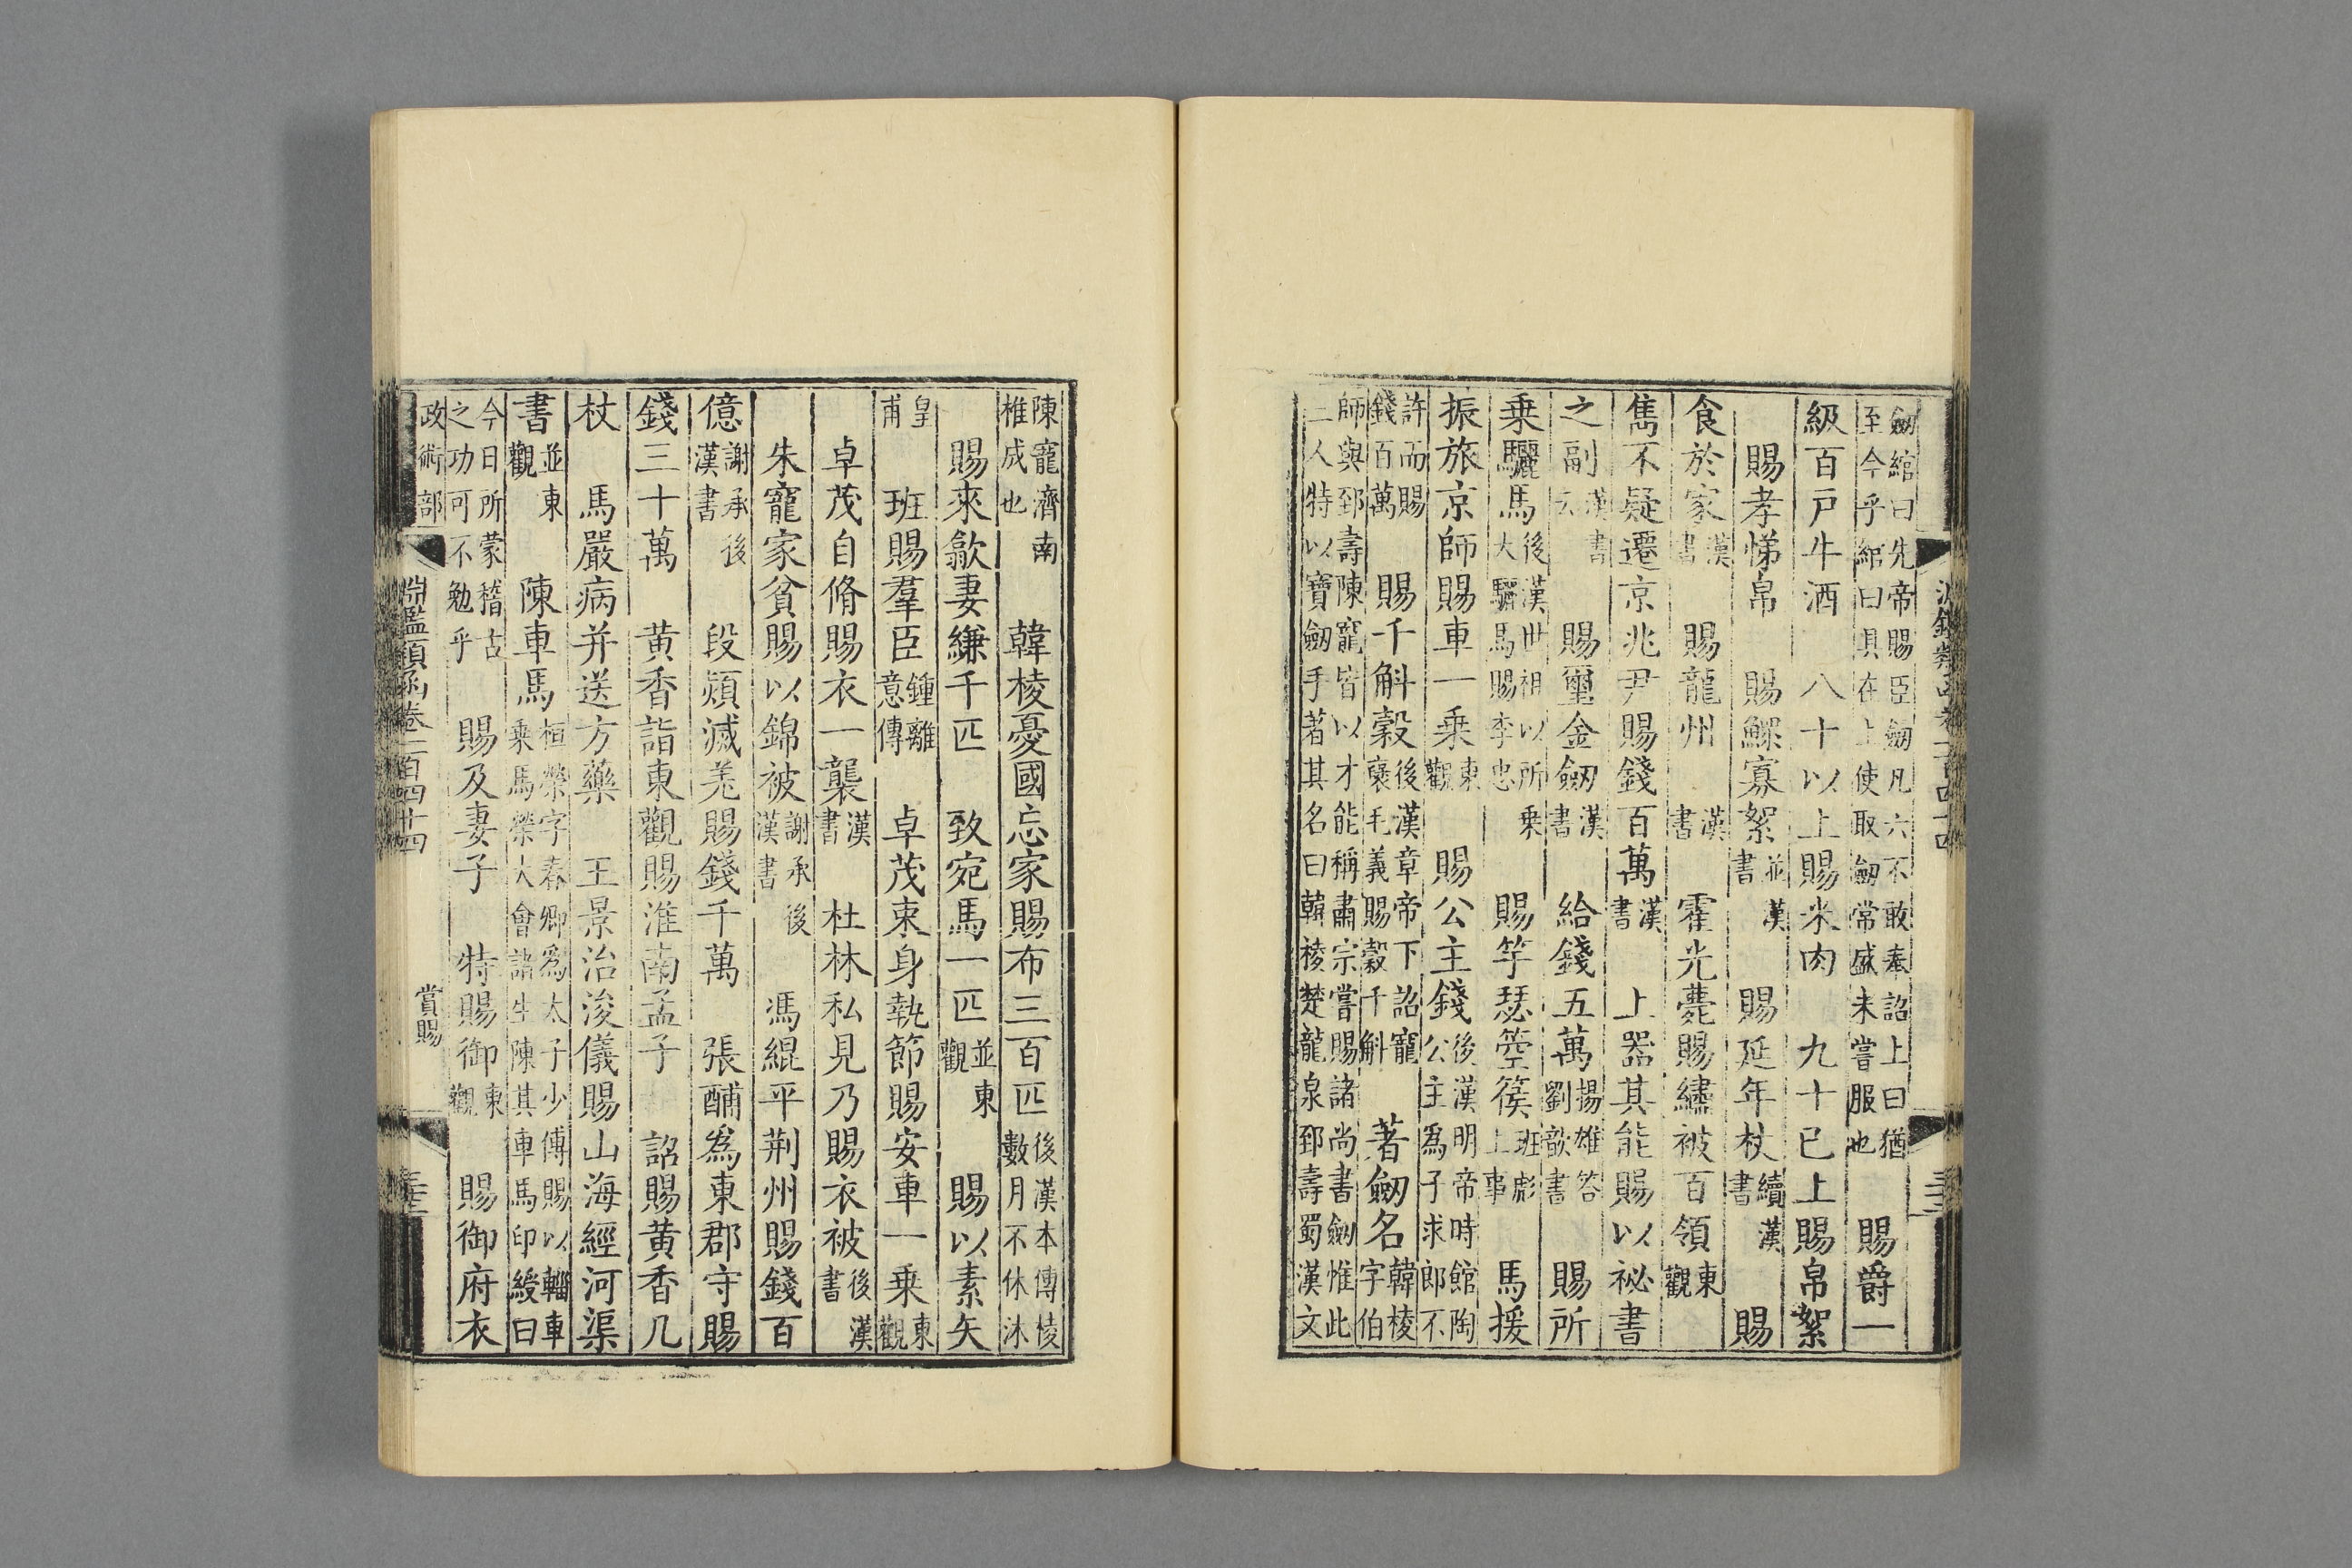 劒綰曰先帝賜臣劒凡六不敢奉詔上曰猶
至今乎綰曰具在上使取劒常盛未嘗服也　賜爵一
級百戸牛酒　八十以上賜米肉　九十已上賜帛絮
賜孝悌帛　賜鰥寡絮並漢書　賜延年杖續漢書　賜
食於家漢書　賜龍州漢書　霍光薨賜繡被百領東觀
雋不疑遷京兆尹賜錢百萬漢書　上器其能賜以祕書
之副漢書云　賜璽金劒漢書　給錢五萬揚雄答劉歆書　賜所
乗驪馬後漢世祖以所乗大驪馬賜李忠　賜竽瑟箜篌班彪上事　馬援
振旅京師賜車一乗東觀　賜公主錢後漢明帝時館陶公主為子求郎不
許而賜錢百萬　賜千斛穀後漢章帝下詔寵襃毛義賜穀千斛　著劒名韓棱字伯
師與郅壽陳寵皆以才能稱肅宗嘗賜諸尚書劒惟此
二人特以寶劒手著其名曰韓棱楚龍泉郅壽蜀漢文
陳寵濟南椎成也　韓棱憂國忘家賜布三百匹後漢本傳棱數月不休沐
賜來歙妻縑千匹　致宛馬一匹並東觀　賜以素矢
皇甫　班賜羣臣鍾離意傳　卓茂束身執節賜安車一乗東觀
卓茂自脩賜衣一襲漢書　杜林私見乃賜衣被後漢書
朱寵家貧賜以錦被謝承後漢書　馮緄平荆州賜錢百
億謝承後漢書　段熲滅羌賜錢千萬　張酺為東郡守賜
錢三十萬　黄香詣東觀賜淮南孟子　詔賜黄香几
杖　馬嚴病并送方藥　王景治浚儀賜山海經河渠
書並東觀　陳車馬桓榮字春卿為太子少傅賜以輜車乗馬榮大會諸生陳其車馬印綬曰
今日所蒙稽古之功可不勉乎　賜及妻子　特賜御東觀　賜御府衣
政術部　淵鑑類函卷二百四十四　賞賜